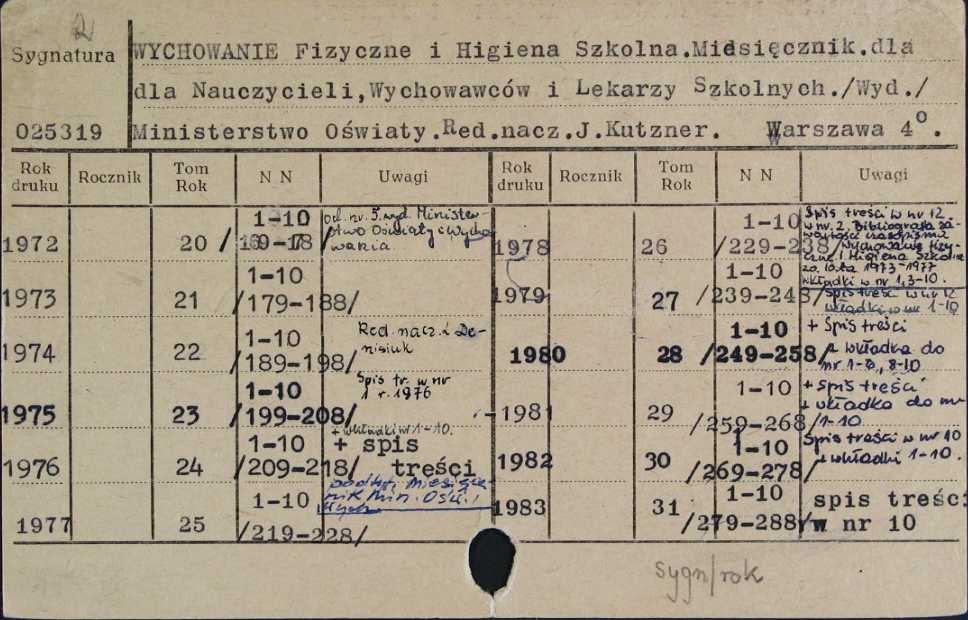 2
Sygnatura
WYCHOWANIE Fizyczne i Higiena Szkolna.Miesięcznik.dla
dla Nauczycieli,Wychowawców i Lekarzy Szkolnych./Wyd./
025319 Ministerstwo Oświaty.Red.nacz.J.Kutzner. Warszawa 4°.
Rok druku Rocznik Tom Rok N N Uwagi Rok druku Rocznik Tom Rok N N Uwagi
1972 20 1-10 /169-178/ od nr. 5. wyd. Ministerstwo Oświaty i Wychowania
1973 21 1-10 /179-188/
1974 22 1-10 /189-198/ Red. nacz. i Denisiuk
1975 23 1-10 /199-208/ Spis tr. w nr 1 r. 1976
+ wkładki nr 1-10.
1976 24 1-10 /209-218/ + spis treści
1977 25 1-10 /219-228/ podtyt. Miesięcznik Min. Ośw. i Wych
1978 26 1-10 /229-238/ Spis treści w nr 12
w nr 2. Bibliografia zawartości czasopisma
Wychowanie Fizyczne i Higiena Szkolna
za lata 1973-1977
wkładki w nr 1,3-10.
1979 27 1-10 /239-248/ Spis treści w nr 12
wkładki w nr 1-10
1980 28 1-10 /249-258/ + Spis treści
+ wkładka do
nr 1-6, 8-10
1981 29 1-10 /259-268/ + spis treści
+ wkładka do nr
1-10
1982 30 1-10 /269-278/ Spis treści w nr 10
+ wkładki 1-10.
1983 31 1-10 /279-288/ spis treści
w nr 10
sygn/rok